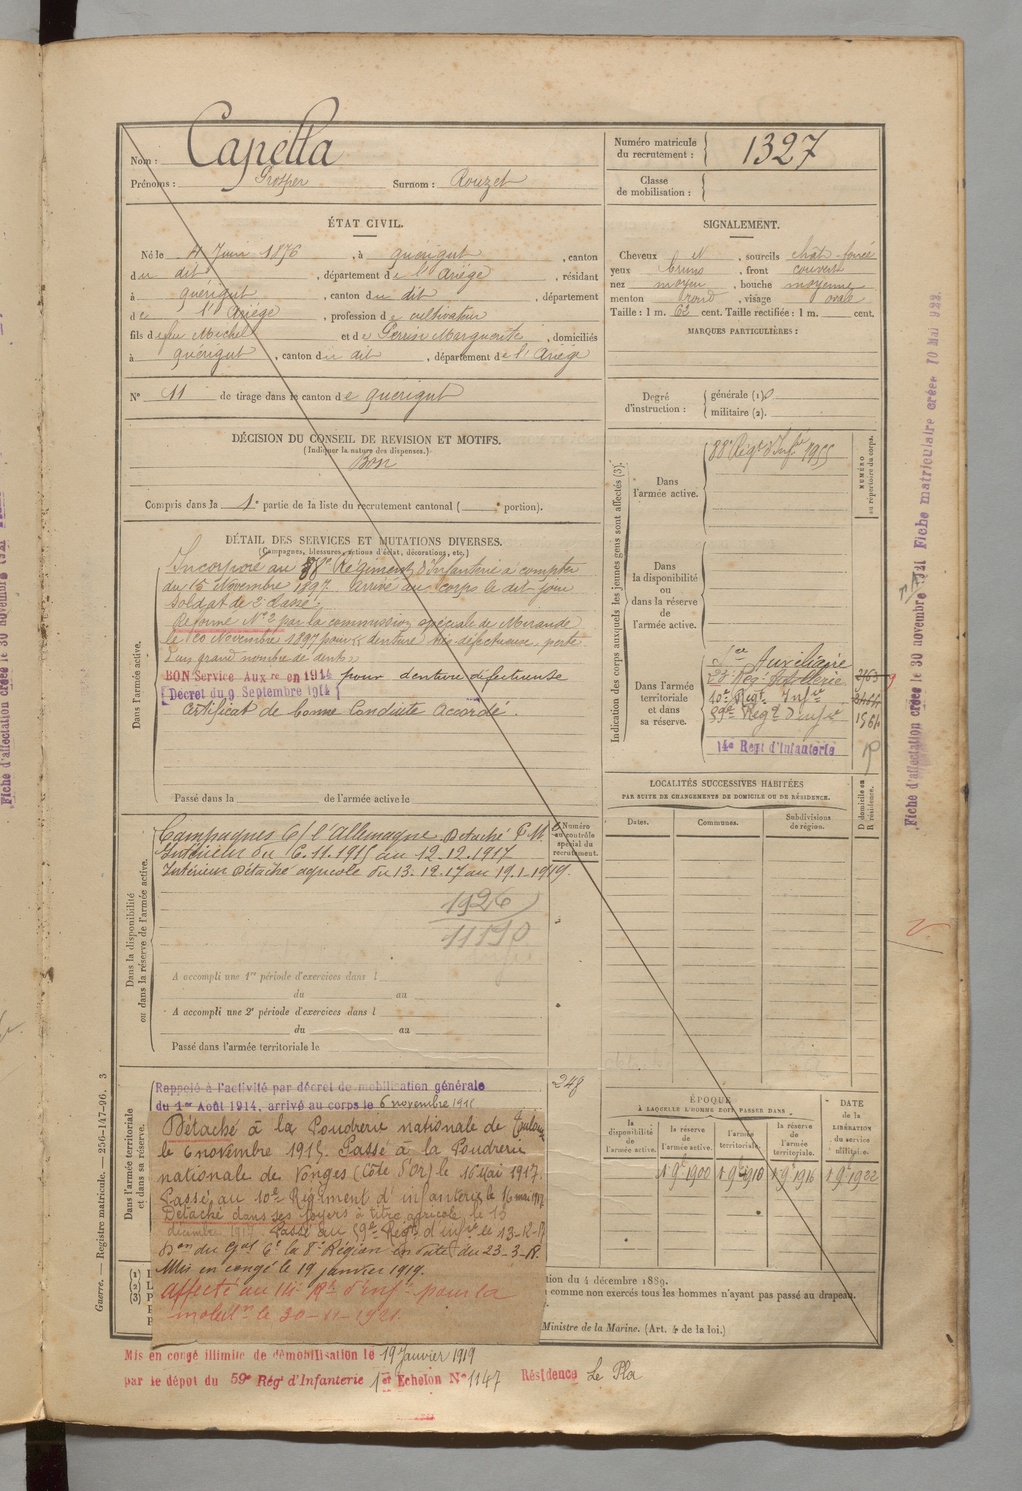 Nom : Capella
Prénoms : Prosper Surnom : Rouzet
Numéro matricule du recrutement : 1327
Classe de mobilisation :
ÉTAT CIVIL.
Né le 4 Juin 1876, à quérigut, canton
du dit, département de l'Ariège, résidant
à quérigut, canton du dit, département
de l'Ariège, profession de cultivateur
fils de feu Michel et de Marguerite, domiciliés
à quérigut, canton du dit, département de l'Ariège
N° 11 de tirage dans le canton de quérigut
SIGNALEMENT.
Cheveux N, sourcils chât-foncé
yeux bruns, front couvert
nez moyen, bouche moyenne
menton rond, visage ovale
Taille : 1 m. 62 cent. Taille rectifiée : 1 m. cent.
MARQUES PARTICULIÈRES :
Degré d'instruction : générale (1) 0
militaire (2).
DÉCISION DU CONSEIL DE REVISION ET MOTIFS.
(Indiquer la nature des dispenses.)
Bon
Compris dans la 1e partie de la liste du recrutement cantonal ( e portion).
DÉTAIL DES SERVICES ET MUTATIONS DIVERSES.
(Campagnes, blessures, actions d'éclat, décorations, etc.)
Dans l'armée active.
Incorporé au 88e Régiment d'Infanterie a compter
du 16 Novembre 1897. Arrivé au corps le dit jour
Soldat de 2e classe.
Réformé N° 2 par la commission spéciale de Mirande
le 20 Novembre 1897 pour « denture très défectueuse, perte
d'un grand nombre de dents »
BON Service Auxre en 1914 pour denture défectueuse
Décret du 9 Septembre 1914
Certificat de bonne Conduite Accordé.
Passé dans la de l'armée active le
Indication des corps auxquels les jeunes gens sont affectés (3).
NUMÉRO au répertoire du corps.
Dans l'armée active. 88e Régt d'Infrie 1955
Dans la disponibilité ou dans la réserve de l'armée active.
Dans l'armée territoriale et dans sa réserve.
Auxiliaire
23e Rég. Artillerie 2163
10e Régt Infrie
59e Régt d'Infrie 1564
14e Regt d'Infanterie
LOCALITÉS SUCCESSIVES HABITÉES
PAR SUITE DE CHANGEMENTS DE DOMICILE OU DE RÉSIDENCE.
D domicile ou R résidence.
Dates. Communes. Subdivisions de région.
Dans la disponibilité ou dans la réserve de l'armée active.
Numéro au contrôle spécial du recrutement.
Campagnes C/ l'Allemagne Détaché P.M.
Intérieur du 6.11.1915 au 12.12.1917
Intérieur Détaché agricole du 13.12.17 au 19.1.1919.
1926
11190
A accompli une 1re période d'exercices dans l
du au
A accompli une 2e période d'exercices dans l
du au
Passé dans l'armée territoriale le
Dans l'armée territoriale et dans sa réserve.
Rappelé à l'activité par décret de mobilisation générale
du 1er Août 1914, arrivé au corps le 6 novembre 1915
248
Détaché à la Poudrerie nationale de Toulouse
le 6 novembre 1915. Passé à la Poudrerie
nationale de Vonges (Côte d'Or) le 16 Mai 1917.
Passé au 10e Régiment d'infanterie le 16 mai 1917
Détaché dans ses foyers à titre agricole le 13
décembre 1917. Passé au 59e Régt d'infrie le 13-12-17
Don du Gal Ct la 8e Région en date du 23-3-18.
Mis en congé le 19 janvier 1919.
Affecté au 14e Rt d'Inf. pour la
mobilon le 30-11-1921.
ÉPOQUE
À LAQUELLE L'HOMME DOIT PASSER DANS
la disponibilité de l'armée active. la réserve de l'armée active. l'armée territoriale. la réserve de l'armée territoriale.
DATE de la LIBÉRATION du service militaire.
1 9e 1900 1 9e 1910 1 9e 1916 1 9e 1922
(1) L
(2) L
(3) P
tion du 4 décembre 1889.
comme non exercés tous les hommes n'ayant pas passé au drapeau.
Ministre de la Marine. (Art. 4 de la loi.)
Mis en congé illimité de démobilisation le 19 Janvier 1919
par le dépot du 59e Régt d'Infanterie 1er Echelon N° 1147 Résidence Le Pla
Guerre. — Registre matricule. — 256-147-96. 3
Fiche d'affectation créée le 30 novembre 1921 Fiche matriculaire créée 10 Mai 1922.
Fiche d'affectation créée le 30 novembre 1921